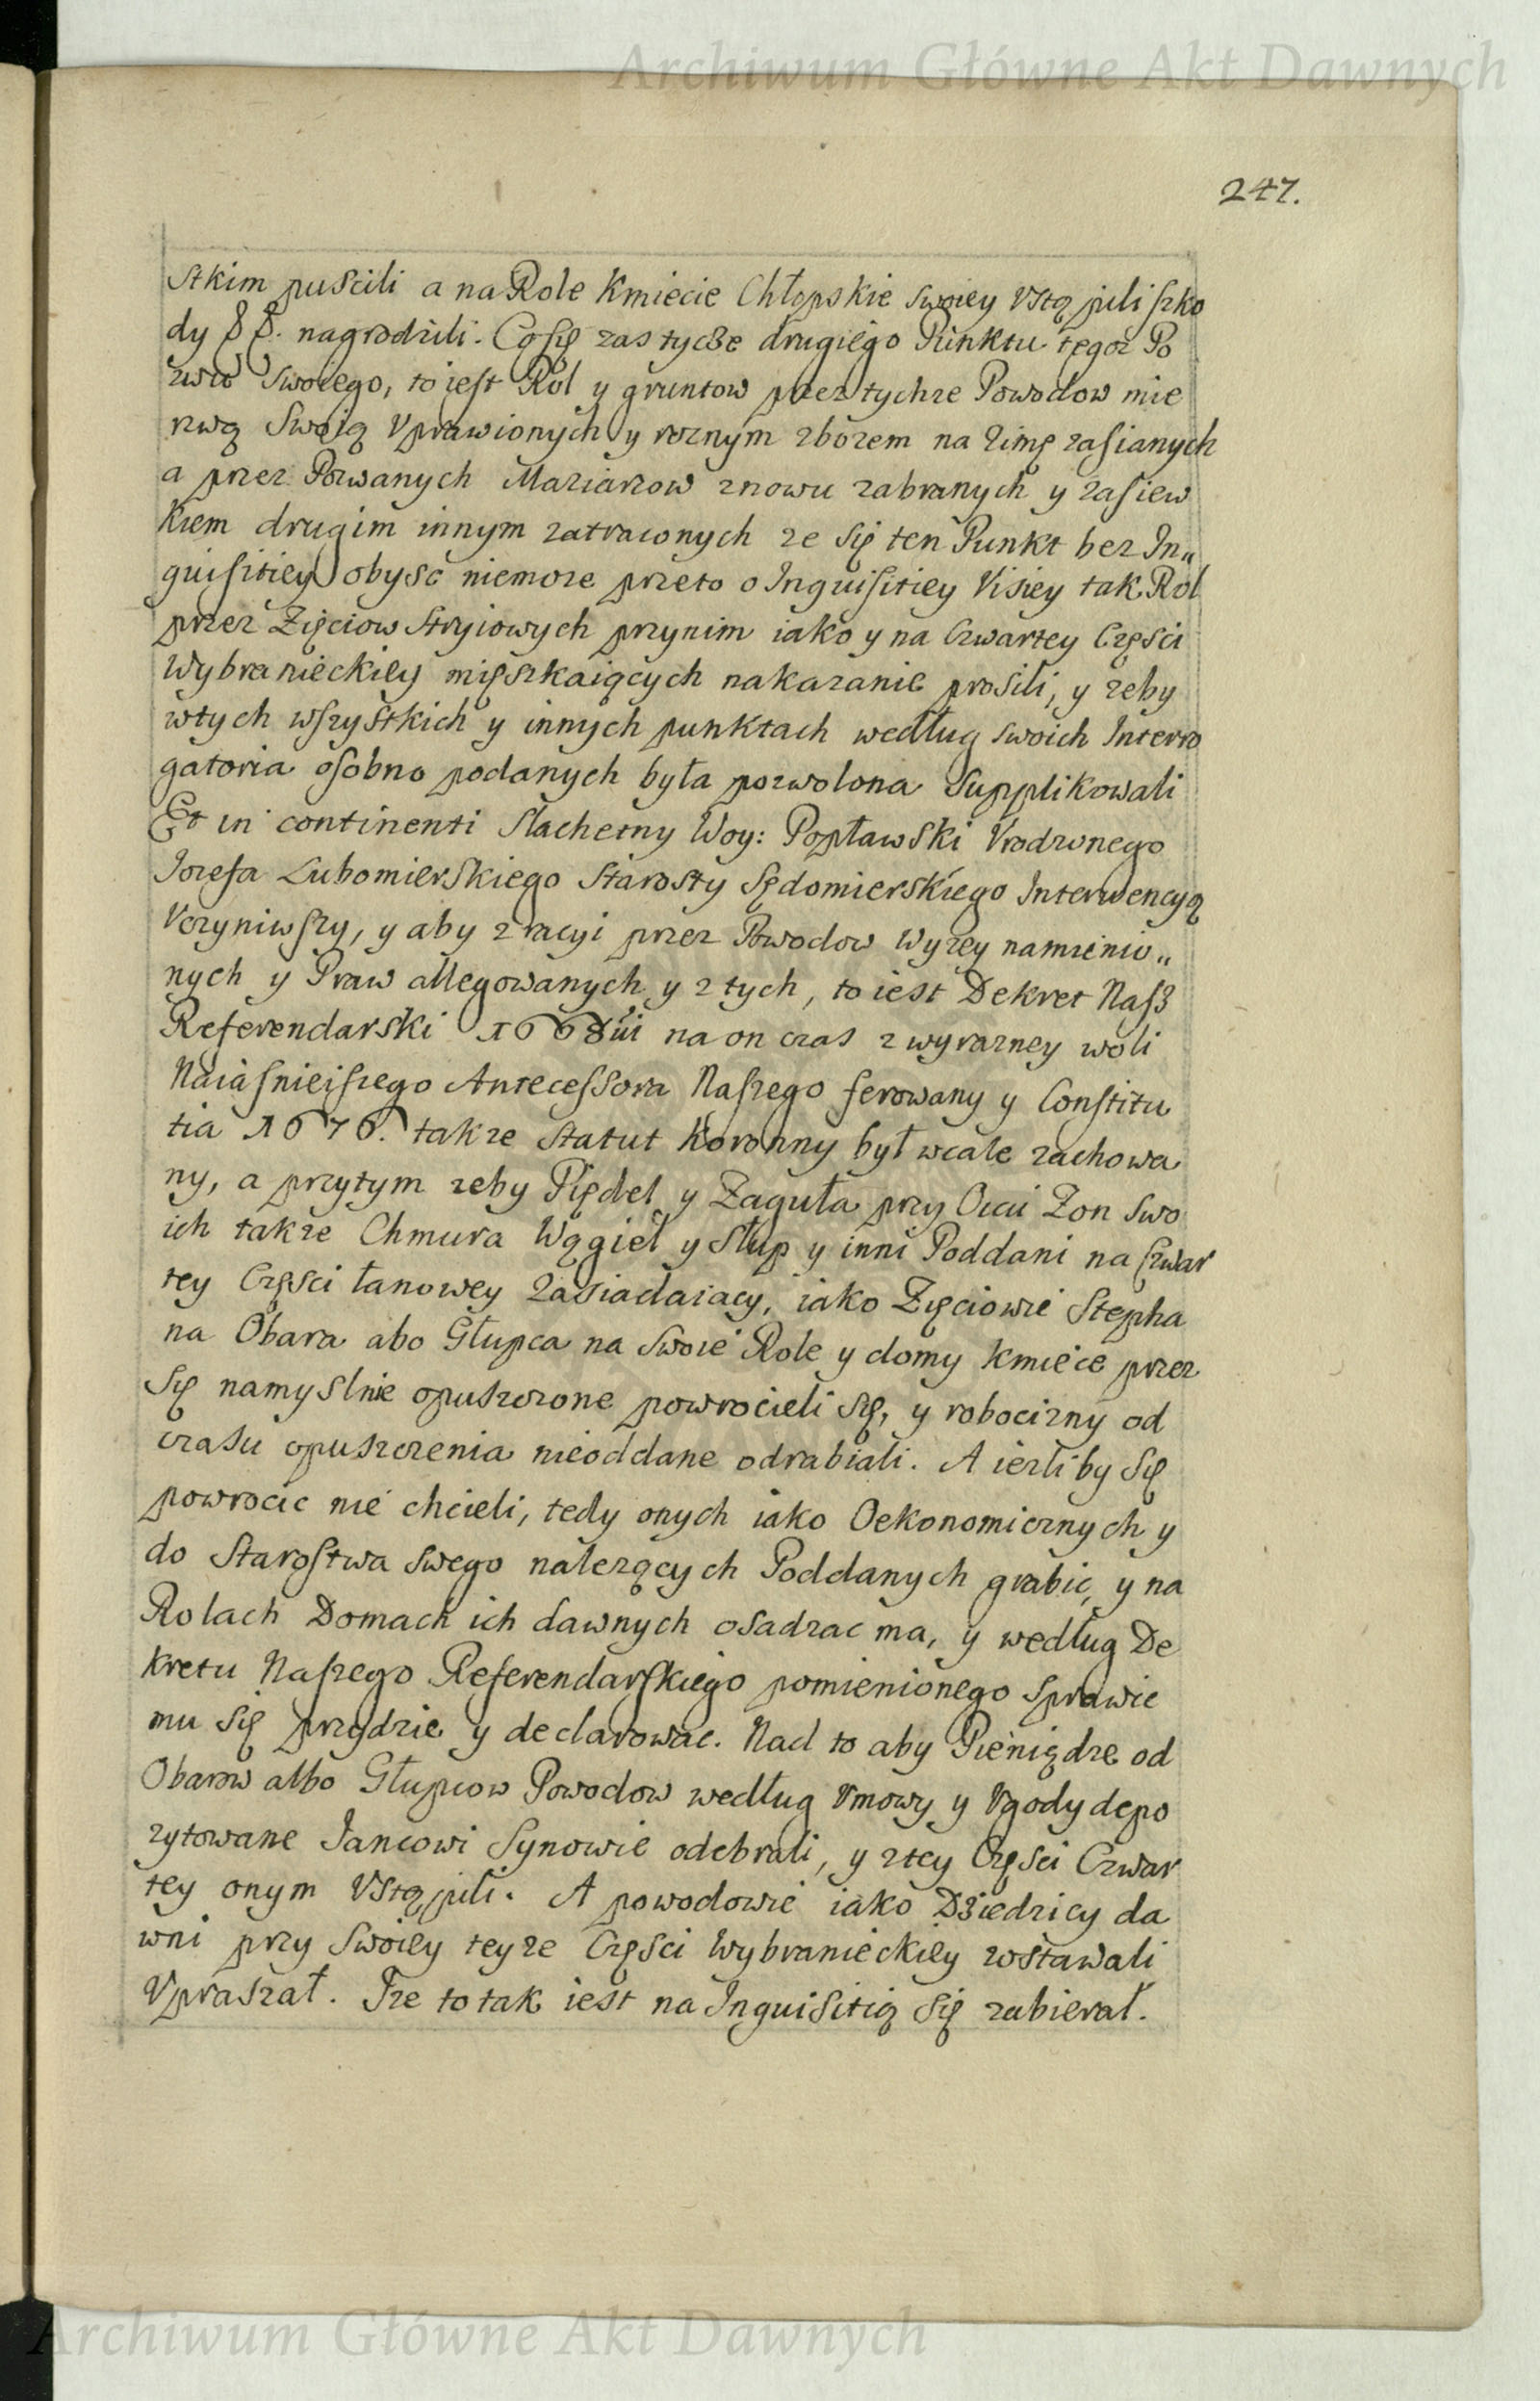 Archiwum Główne Akt Dawnych
247.
Stkim puscili a na Role Kmiecie Chłopskie swoiey Vstąpili szko
dy nagrodzili. Co się zas tycze drugiego Punktu tegoz Po
zwu swoiego, to iest Rol y gruntow przez tychze Powodow mie
rzwą Swoią Vprawionych y roznym zbozem na Zimę zasianych
a przez Pozwanych Maziarzow znowu zabranych y zasiew
kiem drugim innym zatraconych ze się ten Punkt bez In„
quisitiey obysc niemoze przeto o Inquisitiey Visiey tak Rol
przez Zięciow Stryiowych przynim iako y na Czwartey Części
Wybranieckiey mięszkaiących nakazanie prosili, y zeby
wtych wszystkich y innych punktach według swoich Interro
gatoria osobno podanych była pozwolona Supplikowali
Et in continenti Slachetny Woy: Popławski Vrodzonego
Jozefa Lubomierskiego Starosty Sędomierskiego Interwencyą
Vczyniwszy, y aby z racyi przez Powodow Wyzey namienio„
nych y Praw allegowanych y z tych, to iest Dekret Nasz
Referendarski 1668 na on czas z wyrazney woli
Naiasnieiszego Antecessora Naszego ferowany y Constitu
tia 1676. takze Statut Koronny był wcale zachowa
ny, a przytym zeby Piędel y Zaguła przy Oycu Zon swo
ich takze Chmura Wągiel y Słup y inni Poddani na czwar
tey Części łanowey Zasiadaiacy, iako Zięciowie Stepha
na Obara abo Głupca na swoie Role y domy kmiece przez
Się namyslnie opuszczone powrocieli się, y robocizny od
czasu opuszczenia nieoddane odrabiali. A iezliby Się
powrocic nie chcieli, tedy onych iako Oekonomicznych y
do Starostwa swego nalezących Poddanych grabic, y na
Rolach Domach ich dawnych osadzac ma, y według De
kretu Naszego Referendarskiego pomienionego sprawie
mu się przydzie y declarowac. Nad to aby Pieniądze od
Obarow albo Głupcow Powodow według Vmowy y Vgody depo
zytowane Jancowi Synowie odebrali, y ztey Części Czwar
tey onym Vstąpili. A powodowie iako Dziedzicy da
wni przy swoiey teyze Części Wybranieckiey zostawali
Vpraszał. Jze to tak iest na Inquisitią się zabierał.
Archiwum Główne Akt Dawnych